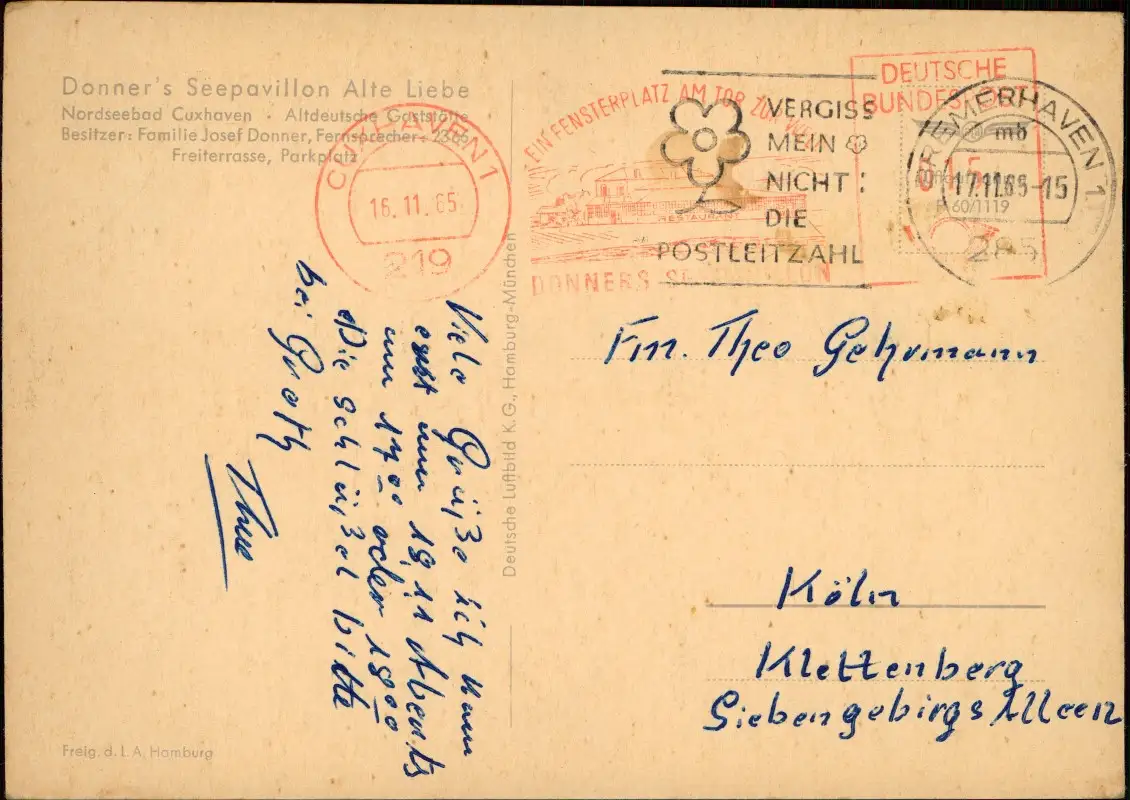 Donner's Seepavillon Alte Liebe
Nordseebad Cuxhaven · Altdeutsche Gaststätte
Besitzer: Familie Josef Donner, Fernsprecher: 2366
Freiterrasse, Parkplatz
CUXHAVEN 1
16.11.65
219
EIN FENSTERPLATZ AM TOR ZUR WELT
RESTAURANT
DONNERS SEEPAVILLON
VERGISS
MEIN
NICHT:
DIE
POSTLEITZAHL
DEUTSCHE
BUNDESPOST
015
F 60/1119
BREMERHAVEN 1
mb
17.11.65-15
285
Viele Grüße ich kom
erst am 18.11 Abents
um 1700 oder 1800
die schlüßel bitte
bei
Theo
Deutsche Luftbild K.G., Hamburg-München
Fm. Theo Gehrmann
Köln
Klettenberg
Siebengebirgs Alleen
Freig. d. L.A. Hamburg